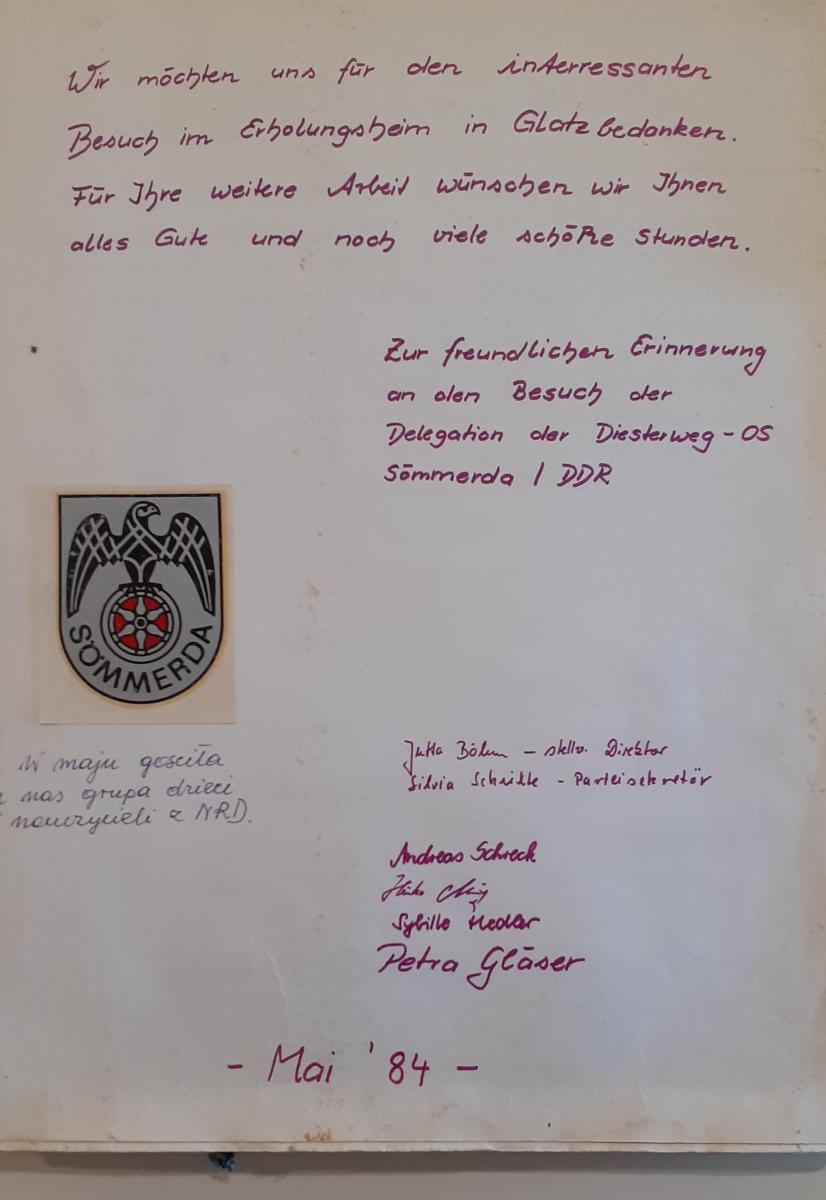 Wir möchten uns für den interressanten
Besuch im Erholungsheim in Glatz bedanken.
Für Ihre weitere Arbeit wünschen wir Ihnen
alles Gute und noch viele schöne Stunden.
Zur freundlichen Erinnerung
an den Besuch der
Delegation der Diesterweg-OS
Sömmerda / DDR
SÖMMERDA
W maju gościła
nas grupa dzieci
nauczycieli z NRD.
Jutta Böhm - stellv. Direktor
Silvia - Parteisekretär
Andreas Schreck
Heiko
Sybille Hedler
Petra Gläser
- Mai '84 -